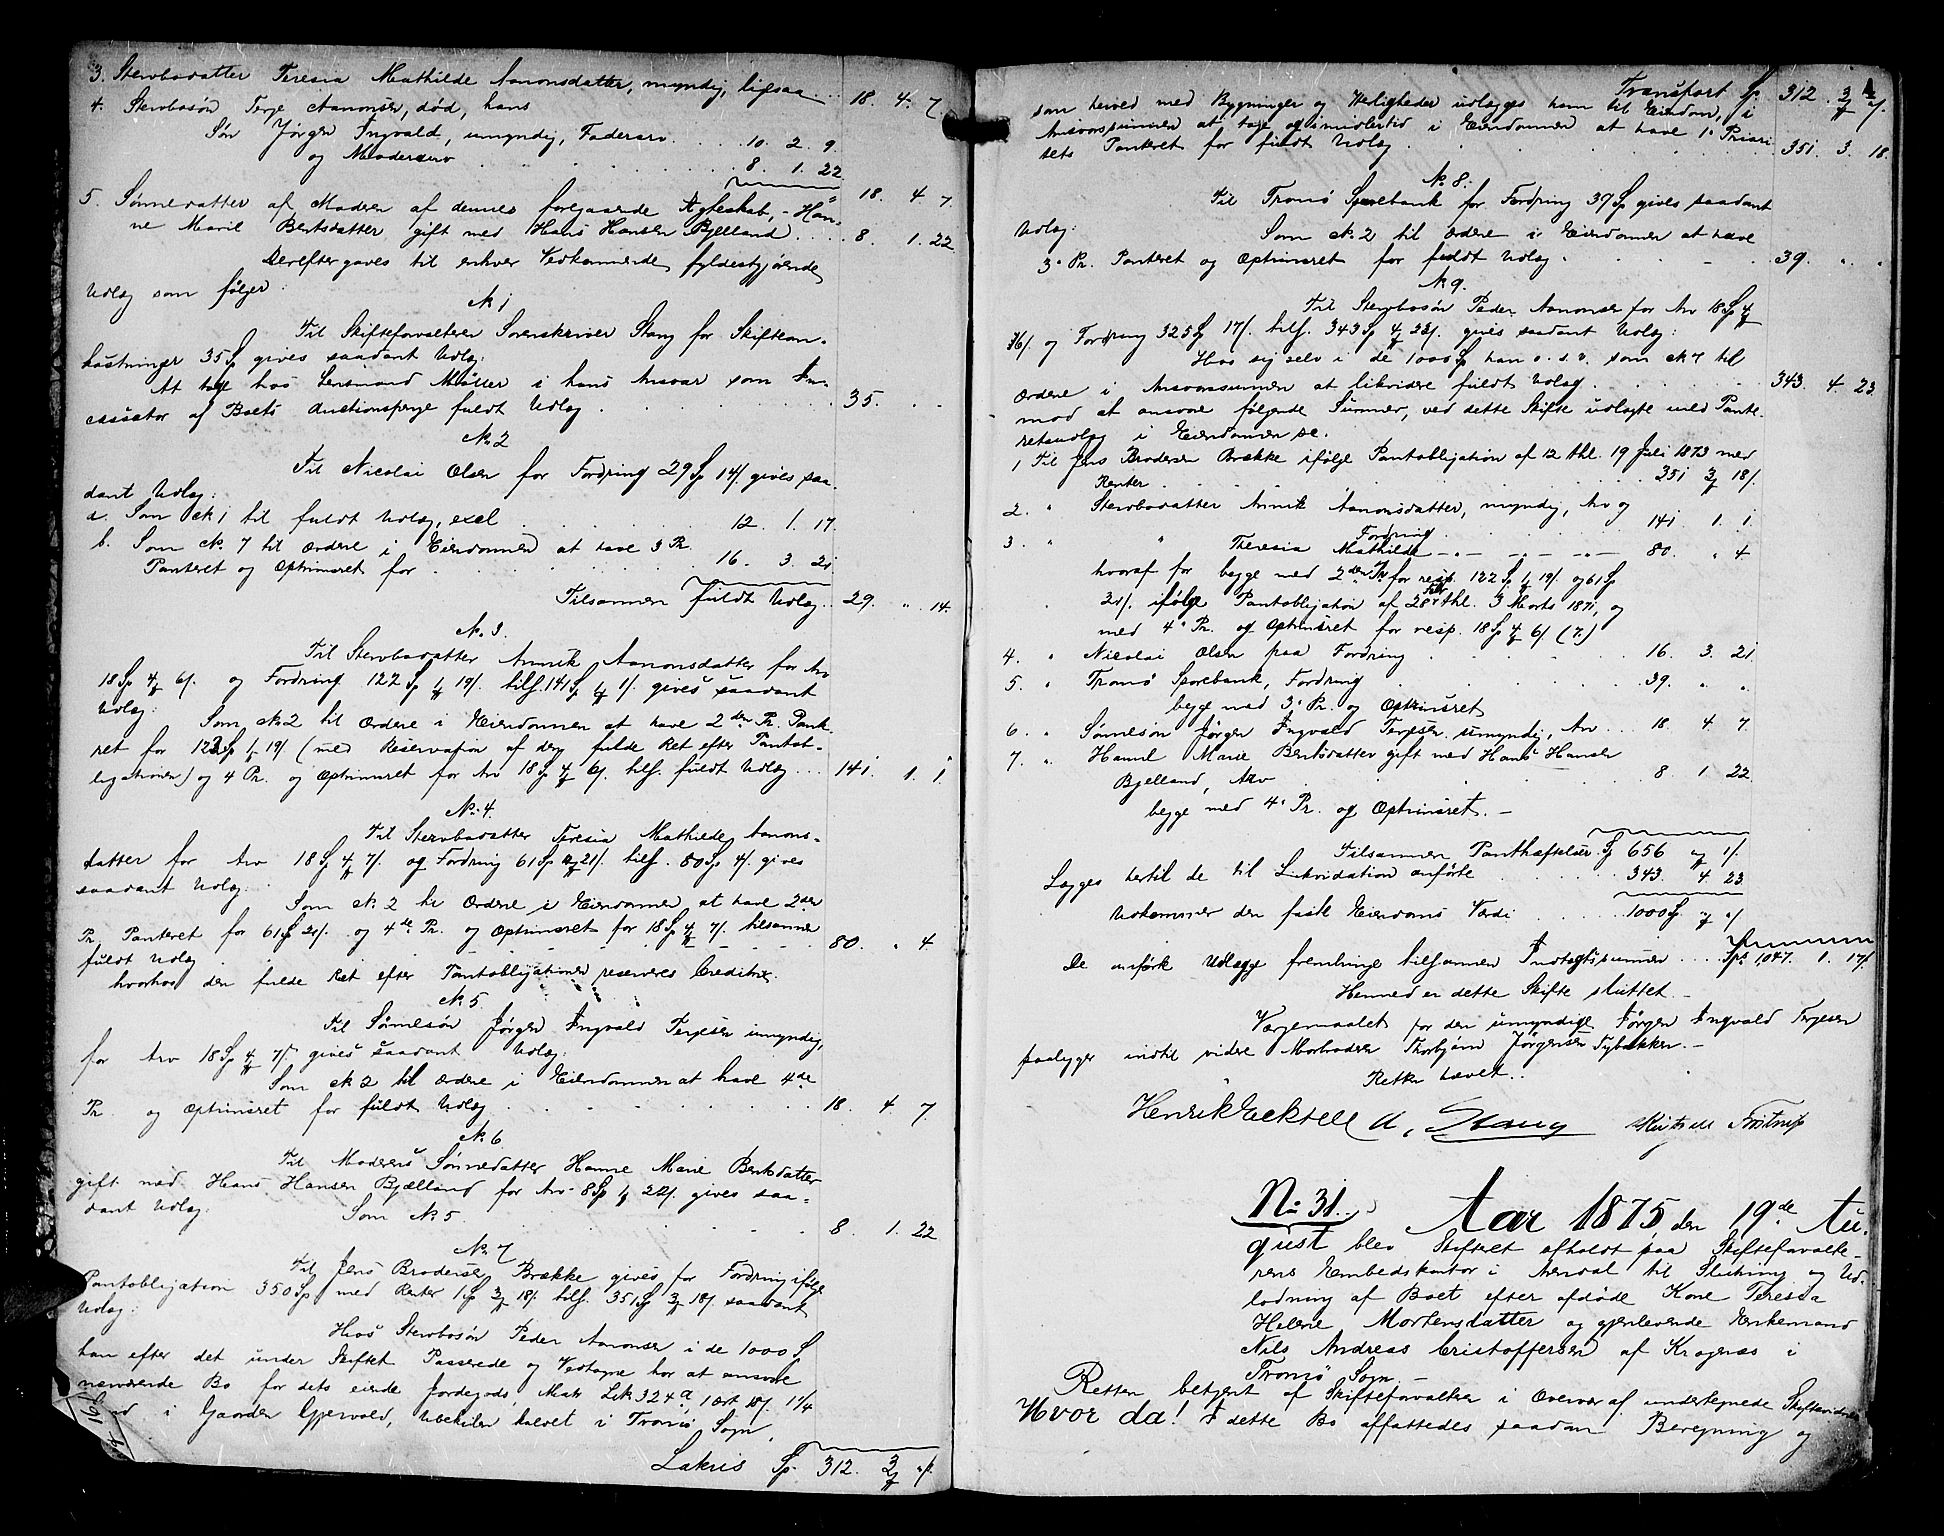 3. Stervbodatter Teresia Mathilde Aanonsdatter, myndig, ligesaa . . 18. 4. 7.
4. Stervbosøn Terje Aanonsen, død, hans
Søn Jørgen Ingvald, umyndig, Fadersarv . . . . 10. 2. 9
og Modersarv . . . . . . . 8. 1. 22
18. 4. 7
5. Sønnedatter af Moderen af dennes foregaaende Ægteskab, - Han-
ne Marie Bentsdatter gift med Hans Hansen Bjelland . . . . 8. 1. 22
Derefter gaves til enhver Vedkommende fyldestgjørende
Udlæg som følger:
No 1
Til Skifteforvalteren Sorenskriver Stang for Skifteom-
kostninger 35 Sp gives saadant Udlæg:
At tage hos Lensmand Møller i hans Ansvar som In-
cassator af Boets Auctionspenge fuldt Udlæg . . . . . . 35. . -
No. 2
Til Nicolai Olsen for Fordring 29 Sp 14/. gives saa-
dant Udlæg:
a. Som No 1 til fuldt Udlæg, . . . . . . 12. 1. 17.
b. Som No. 7 til Ordene i Eiendommen at have 3 Pr.
Panteret og Optrinsret for . . . . . . 16. 3. 21
Tilsammen fuldt Udlæg . . 29. " . 14.
No. 3.
Til Stervbodatter Annik Aanonsdatter for Arv
18 Sp 4 6/. og Fordring 122 Sp 1 19/. tils. 141 Sp 1 1/. gives saadant
Udlæg:
Som No. 2 til Ordene i Eiendommen at have 2den Pr. Pante-
ret for 122 Sp 1 19/ (med Reservation af den fulde Ret efter Pantob-
ligationen) og 4 Pr. og Optrinsret for Arv 18 Sp 4 6/. tils. fuldt Udlæg . . . 141. 1. 1.
No. 4.
Til Stervbodatter Teresia Mathilde Aanons-
datter for Arv 18 Sp 4 7/. og Fordring 61 Sp 21/. tils. 80 Sp 4/. gives
saadant Udlæg:
Som No. 2 til Ordene i Eiendommen at have 2den
Pr. Panteret for 61 Sp 21/. og 4de Pr. og Optrinsret for 18 Sp 4 7/. tilsammen
fuldt Udlæg . . . . . . 80. " 4.
hvorhos den fulde Ret efter Pantobligationen reserveres Creditrix.
No. 5
Til Sønnesøn Jørgen Ingvald Terjesen umyndig,
for Arv 18 Sp 4 7/. gives saadant Udlæg:
Som No 2 til Ordene i Eiendommen at have 4de
Pr. og Optrinsret for fuldt Udlæg . . . . . . 18. 4. 7
No. 6
Til Moderens Sønnedatter Hanne Marie Bentsdatter
gift med Hans Hansen Bjælland for Arv 8 Sp 1 22/. gives saa-
dant Udlæg:
Som No. 5 . . . . . . 8. 1. 22
No. 7
Til Jens Brodersen Brække gives for Fordring ifølge
Pantobligation 350 Sp med Renter 1 Sp 3 18/. tils. 351 Sp 3 18/. saadant
Udlæg:
Hos Stervbosøn Peder Aanonsen i de 1000 Sp
han efter det under Skiftet Passerede og Vedtagne har at ansvare
nærværende Bo for dets eiende Jordegods, Matr. Lnr 324a, 1 ort
i Gaarden Gjervold, beliggende i Tromø Sogn,
Lateris Sp. 312. 3 "/.
Transport Sp. 312. 3 "/.
som herved med Bygninger og Herligheder udlægges ham til Eiendom, i
Ansvarssummen at tage og imidlertid i Eiendommen at have 1. Priori-
tets Panteret for fuldt Udlæg . . . . . . 351. 3. 18.
No. 8.
Til Tromø Sparebank for Fordring 39 Sp gives saadant
Udlæg:
Som No. 2 til Ordene i Eiendommen at have
3. Pr. Panteret og Optrinsret for fuldt Udlæg . . . . 39. " "
No 9.
Til Stervbosøn Peder Aanonsen for Arv 18 Sp 4
6/. og Fordring 325 Sp 17/. tils. 343 Sp 4 23/. gives saadant Udlæg:
Hos sig selv i de 1000 Sp han o. s. v. som No 7 til
Ordene i Ansvarssummen at likvidere fuldt Udlæg . . . . 343. 4. 23.
mod at ansvare følgende Summer, ved dette Skifte udlagte med Pante-
retsudlæg i Eiendommen
1 Til Jens Brodersen Brække ifølge Pantobligation af 12 thl. 19 Juli 1873 med
Renter . . . . . . 351 3 18/.
2. " Stervbodatter Annik Aanonsdatter, myndig, Arv og
Fordring . . . . . . 141. 1. 1.
3. " " Theresia Mathilde -"- -"- -"- 80. " 4
hvoraf for begge med 2den Pr for resp. 122 Sp 1 19/. og 61 Sp
21/. ifølge Pantobligation af 28 thl. 3 Marts 1871, og
med 4. Pr. og Optrinsret for resp. 18 Sp 4 6/ (7.)
4. " Nicolai Olsen paa Fordring . . . . 16. 3. 21
5. " Tromø Sparebank, Fordring . . . . 39. " "
begge med 3. Pr. og Optrinsret
6. " Sønnesøn Jørgen Ingvald Terjesen umyndig, Arv . . 18. 4 7
7. " Hanne Marie Bentsdatter gift med Hans Hansen
Bjelland, Arv . . . . 8. 1 22
begge med 4. Pr. og Optrinsret. -
Tilsammen Panthæftelser Sp 656 " 1/.
Lægges hertil de til Likvidation anførte . . . . 343. 4. 23
Udkommer den faste Eiendoms Værdi . . . . 1000 Sp. " "/
De anførte Udlægge frembringe tilsammen Indtægtssummen . . . . Sp. 1,047. 1. 17/.
Hermed er dette Skifte sluttet. -
Værgemaalet for den umyndige Jørgen Ingvald Terjesen
paalægges indtil videre Morbroderen Thorbjørn Jørgensen Sybakken. -
Retten hævet.
Henrik A. Stang Frostrup
No 31. Aar 1875, den 19de Au-
gust blev Skifteret afholdt paa Skifteforvalte-
rens Embedskontor i Arendal til Slutning og Ud-
lodning af Boet efter afdøde Kone Teresia
Helene Mortensdatter og gjenlevende Enkemand
Nils Andreas Cristoffersen af Kragenæs i
Tromø Sogn. -
Retten betjent af Skifteforvalteren i Overvær af undertegnede Skiftevidner.
Hvor da! I dette Bo affattedes saadan Beregning og